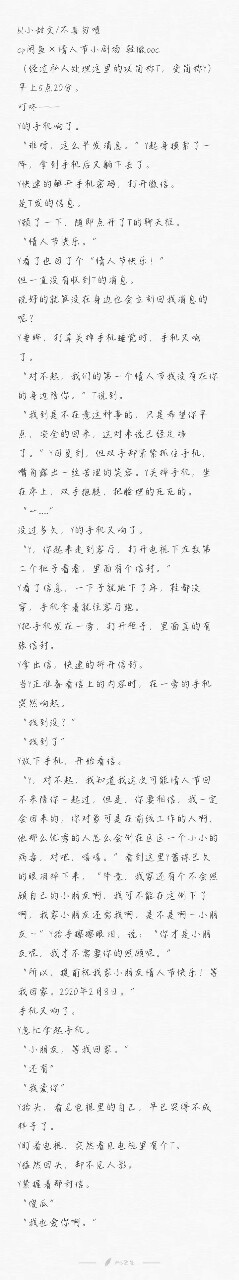 超小甜文/不喜勿喷
cp闲鱼×情人节小剧场 轻微ooc
（经过私人处理这里的攻简称T，受简称Y）
早上6点20分。
叮咚——
Y的手机响了。
“谁呀，这么早发消息。”Y起身摸索了一
阵，拿到手机后又躺下去了。
Y快速的解开手机密码，打开微信。
是T发的信息。
Y顿了一下，随即点开了T的聊天框。
“情人节快乐。”
Y看了也回了个“情人节快乐！”
但一直没有收到T的消息。
说好的就算没在身边也会立刻回我消息的
呢？
Y委屈，打算关掉手机睡觉时，手机又响
了。
“对不起，我们的第一个情人节我没有在你
的身边陪你。”T说到。
“我到是不在意这种事的，只是希望你早
点，安全的回来，这对来说已经足够
了。”Y回复到，但双手却紧紧抓住手机，
嘴角露出一丝苦涩的笑容。Y关掉手机，坐
在床上，双手抱腿，把脸埋的死死的。
“……”
没过多久，Y的手机又响了。
“Y，你起来走到客厅，打开电视下左数第
二个柜子看看，里面有个信封。”
Y看了信息，一下子就跳下了床，鞋都没
穿，手机拿着就往客厅跑。
Y把手机放在一旁，打开柜子，里面真的有
张信封。
Y拿出信，快速的拆开信封。
当Y正准备看信上的内容时，在一旁的手机
突然响起。
“找到没？”
“找到了”
Y放下手机，开始看信。
“Y，对不起，我知道我这次可能情人节回
不来陪你一起过，但是，你要相信，我一定
会回来的，你对象可是在前线工作的人啊，
他那么优秀的人怎么会倒在区区一个小小的
病毒，对吧，嘻嘻。”看到这里Y蓄谋已久
的眼泪掉下来，“毕竟，我家还有个不会照
顾自己的小朋友啊，我可不能在这倒下了
啊，我家小朋友还等我啊，是不是啊~小朋
友~”Y抬手擦擦眼泪，说：“你才是小朋
友呢，我才不需要你的照顾呢。”
“所以，提前祝我家小朋友情人节快乐！等
我回家。2020年2月8日。”
手机又响了。
Y急忙拿起手机。
“小朋友，等我回家。”
“还有”
“我爱你”
Y抬头，看见电视里的自己，早已哭得不成
样子了。
Y盯着电视，突然看见电视里有个T。
Y猛然回头，却不见人影。
Y紧握着那封信。
“傻瓜”
“我也爱你啊。”